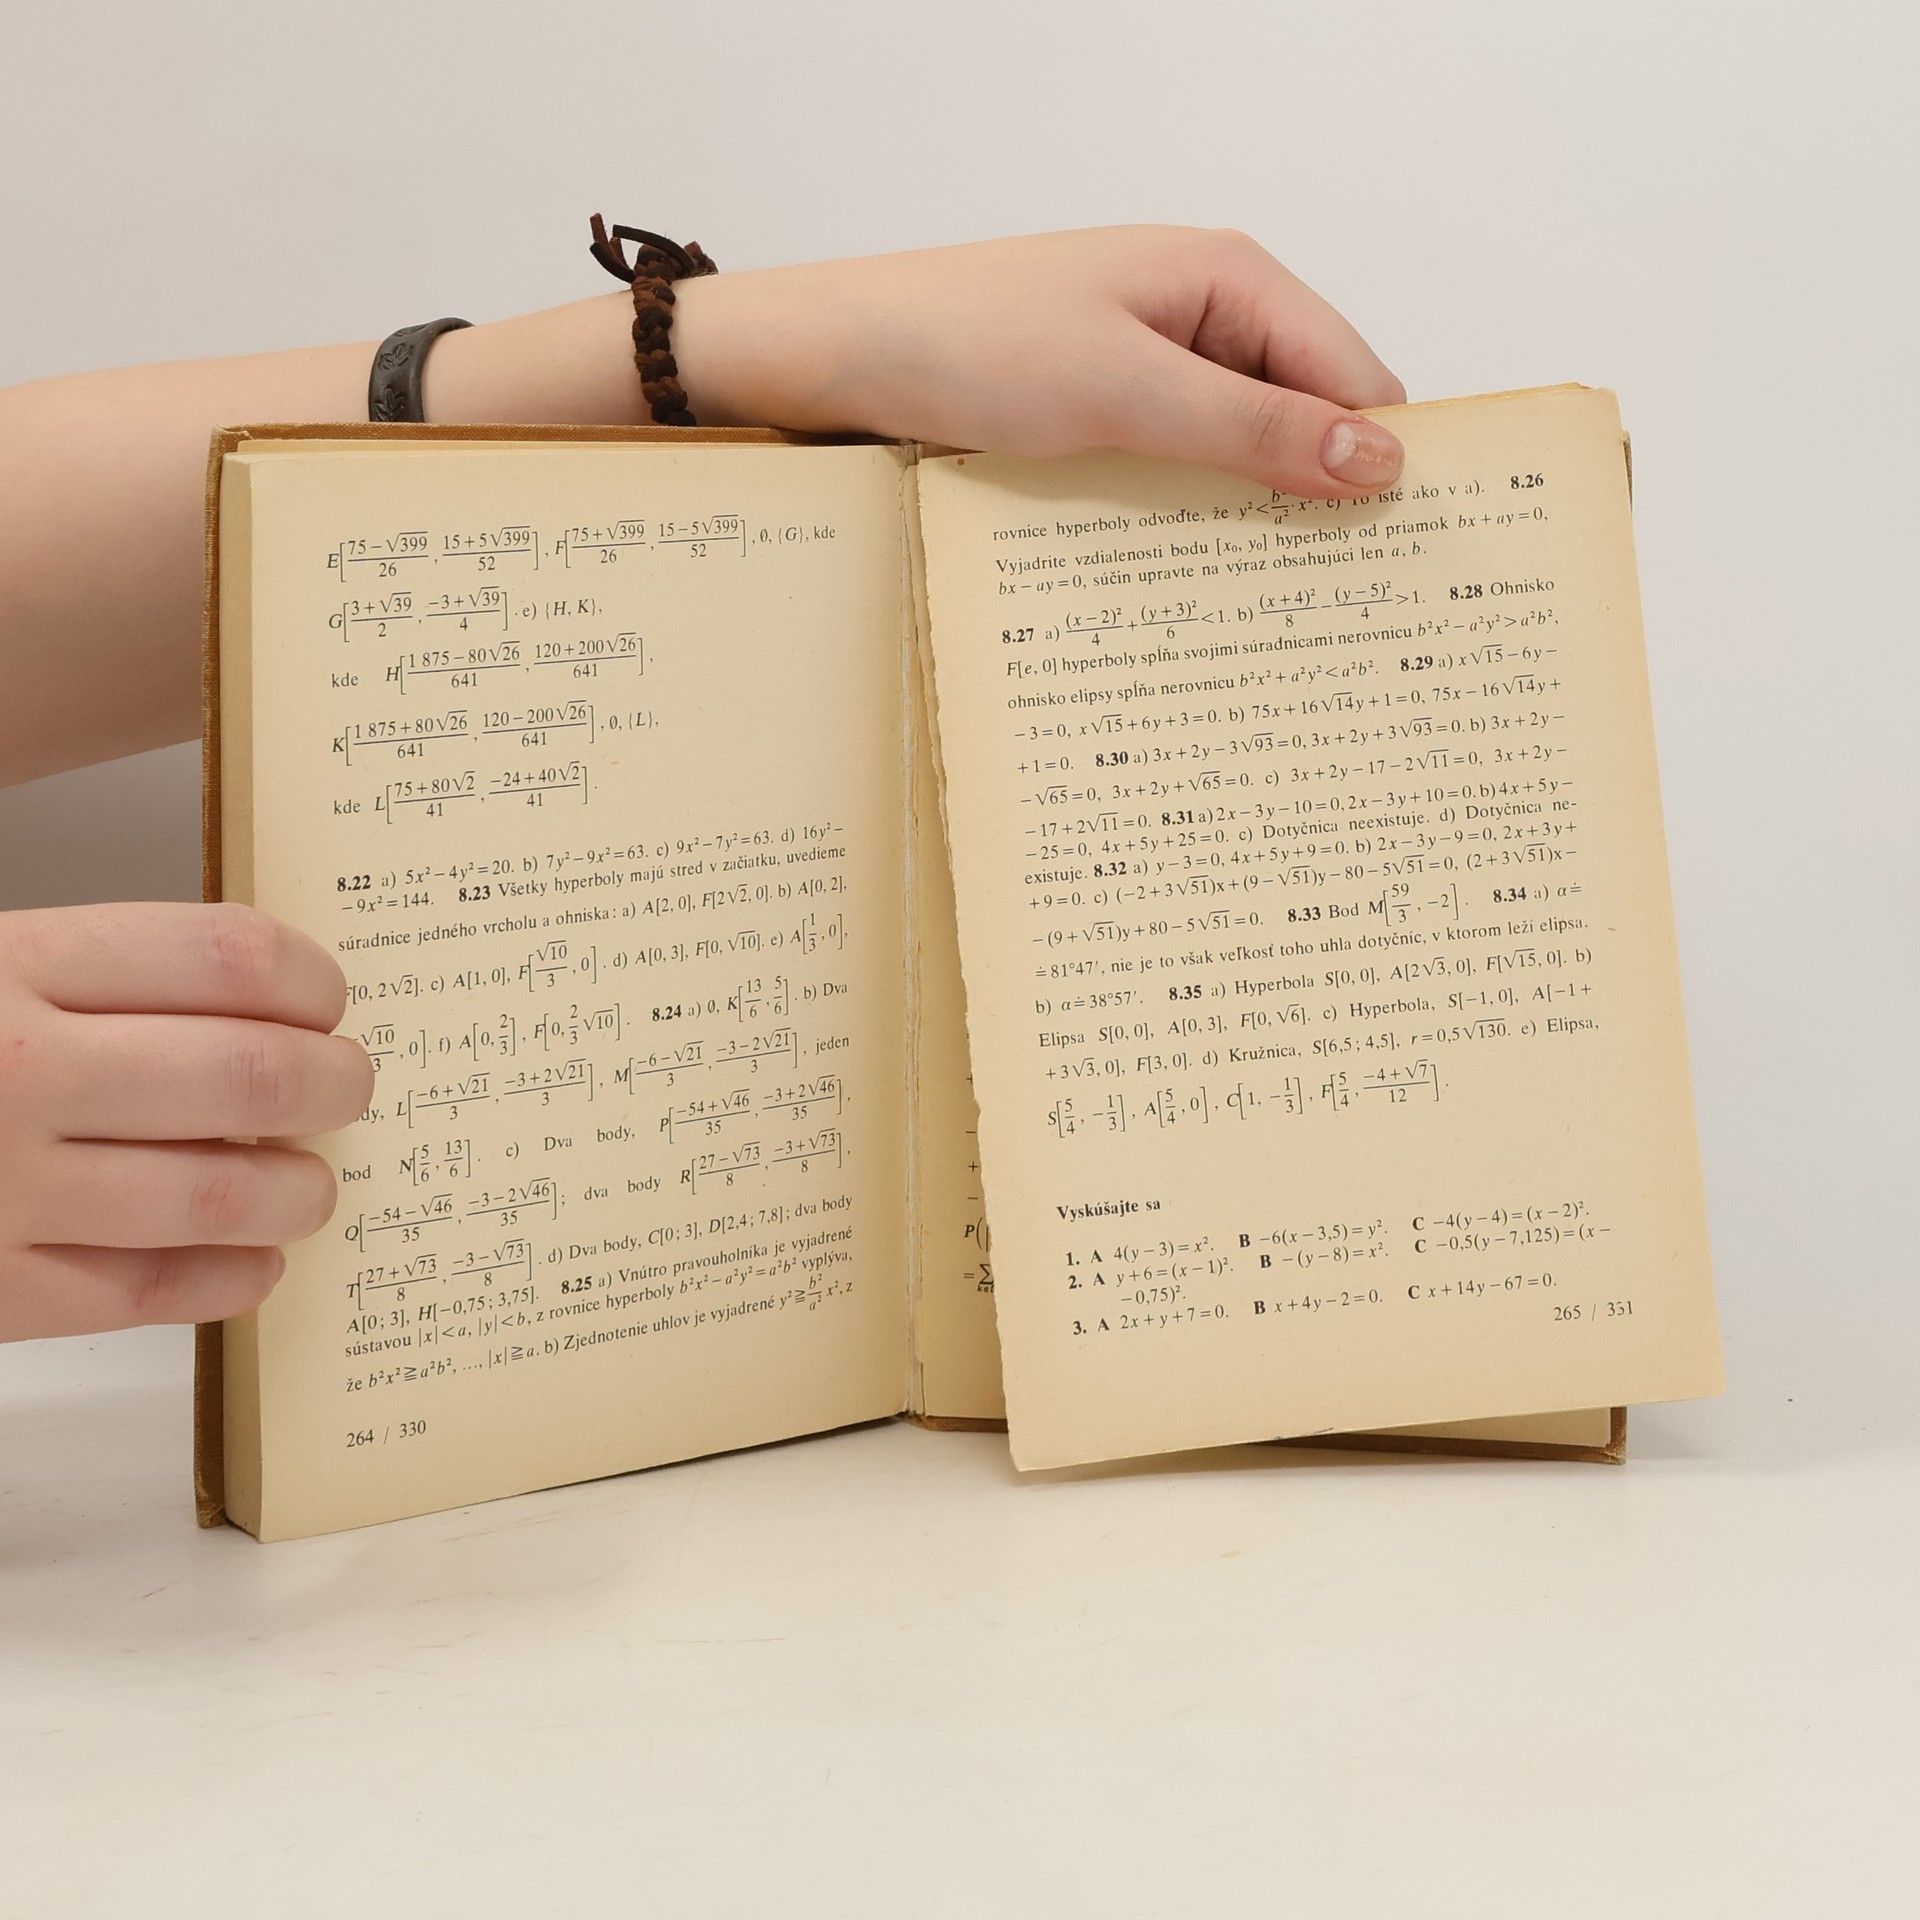 E[(75−√399)/26, (15+5√399)/52], F[(75+√399)/26, (15−5√399)/52], ∅, {G}, kde
G[(3+√39)/2, (−3+√39)/4]. e) {H, K},
kde H[(1 875−80√26)/641, (120+200√26)/641],
K[(1 875+80√26)/641, (120−200√26)/641], ∅, {L},
kde L[(75+80√2)/41, (−24+40√2)/41].
8.22 a) 5x²−4y²=20. b) 7y²−9x²=63. c) 9x²−7y²=63. d) 16y²−
−9x²=144. 8.23 Všetky hyperboly majú stred v začiatku, uvedieme
súradnice jedného vrcholu a ohniska: a) A[2, 0], F[2√2, 0]. b) A[0, 2],
F[0, 2√2]. c) A[1, 0], F[√10/3, 0]. d) A[0, 3], F[0, √10]. e) A[1/3, 0],
√10/3, 0]. f) A[0, 2/3], F[0, 2/3 √10]. 8.24 a) ∅, K[13/6, 5/6]. b) Dva
L[(−6+√21)/3, (−3+2√21)/3], M[(−6−√21)/3, (−3−2√21)/3], jeden
bod N[5/6, 13/6]. c) Dva body, P[(−54+√46)/35, (−3+2√46)/35],
Q[(−54−√46)/35, (−3−2√46)/35]; dva body R[(27−√73)/8, (−3+√73)/8],
T[(27+√73)/8, (−3−√73)/8]. d) Dva body, C[0; 3], D[2,4; 7,8]; dva body
A[0; 3], H[−0,75; 3,75]. 8.25 a) Vnútro pravouholníka je vyjadrené
sústavou |x|<a, |y|<b, z rovnice hyperboly b²x²−a²y²=a²b² vyplýva,
že b²x²≧a²b², ..., |x|≧a. b) Zjednotenie uhlov je vyjadrené y²≧b²/a² x², z
264 / 330
rovnice hyperboly odvoďte, že y²<b²/a²·x². c) To isté ako v a). 8.26
Vyjadrite vzdialenosti bodu [x₀, y₀] hyperboly od priamok bx+ay=0,
bx−ay=0, súčin upravte na výraz obsahujúci len a, b.
8.27 a) (x−2)²/4+(y+3)²/6<1. b) (x+4)²/8−(y−5)²/4>1. 8.28 Ohnisko
F[e, 0] hyperboly spĺňa svojimi súradnicami nerovnicu b²x²−a²y²>a²b²,
ohnisko elipsy spĺňa nerovnicu b²x²+a²y²<a²b². 8.29 a) x√15−6y−
−3=0, x√15+6y+3=0. b) 75x+16√14y+1=0, 75x−16√14y+
+1=0. 8.30 a) 3x+2y−3√93=0, 3x+2y+3√93=0. b) 3x+2y−
−√65=0, 3x+2y+√65=0. c) 3x+2y−17−2√11=0, 3x+2y−
−17+2√11=0. 8.31 a) 2x−3y−10=0, 2x−3y+10=0. b) 4x+5y−
−25=0, 4x+5y+25=0. c) Dotyčnica neexistuje. d) Dotyčnica ne-
existuje. 8.32 a) y−3=0, 4x+5y+9=0. b) 2x−3y−9=0, 2x+3y+
+9=0. c) (−2+3√51)x+(9−√51)y−80−5√51=0, (2+3√51)x−
−(9+√51)y+80−5√51=0. 8.33 Bod M[59/3, −2]. 8.34 a) α≐
≐81°47′, nie je to však veľkosť toho uhla dotyčníc, v ktorom leží elipsa.
b) α≐38°57′. 8.35 a) Hyperbola S[0, 0], A[2√3, 0], F[√15, 0]. b)
Elipsa S[0, 0], A[0, 3], F[0, √6]. c) Hyperbola, S[−1, 0], A[−1+
+3√3, 0], F[3, 0]. d) Kružnica, S[6,5; 4,5], r=0,5√130. e) Elipsa,
S[5/4, −1/3], A[5/4, 0], C[1, −1/3], F[5/4, (−4+√7)/12].
Vyskúšajte sa
1. A 4(y−3)=x². B −6(x−3,5)=y². C −4(y−4)=(x−2)².
2. A y+6=(x−1)². B −(y−8)=x². C −0,5(y−7,125)=(x−
−0,75)².
3. A 2x+y+7=0. B x+4y−2=0. C x+14y−67=0.
265 / 331